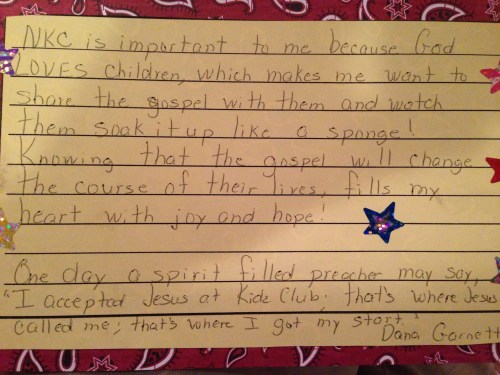 NKC is important to me because God
LOVES children, which makes me want to
share the gospel with them and watch
them soak it up like a sponge!
Knowing that the gospel will change
the course of their lives, fills my
heart with joy and hope!
One day a spirit filled preacher may say,
"I accepted Jesus at Kids Club; that's where Jesus
called me; that's where I got my start."
Dana Garnett